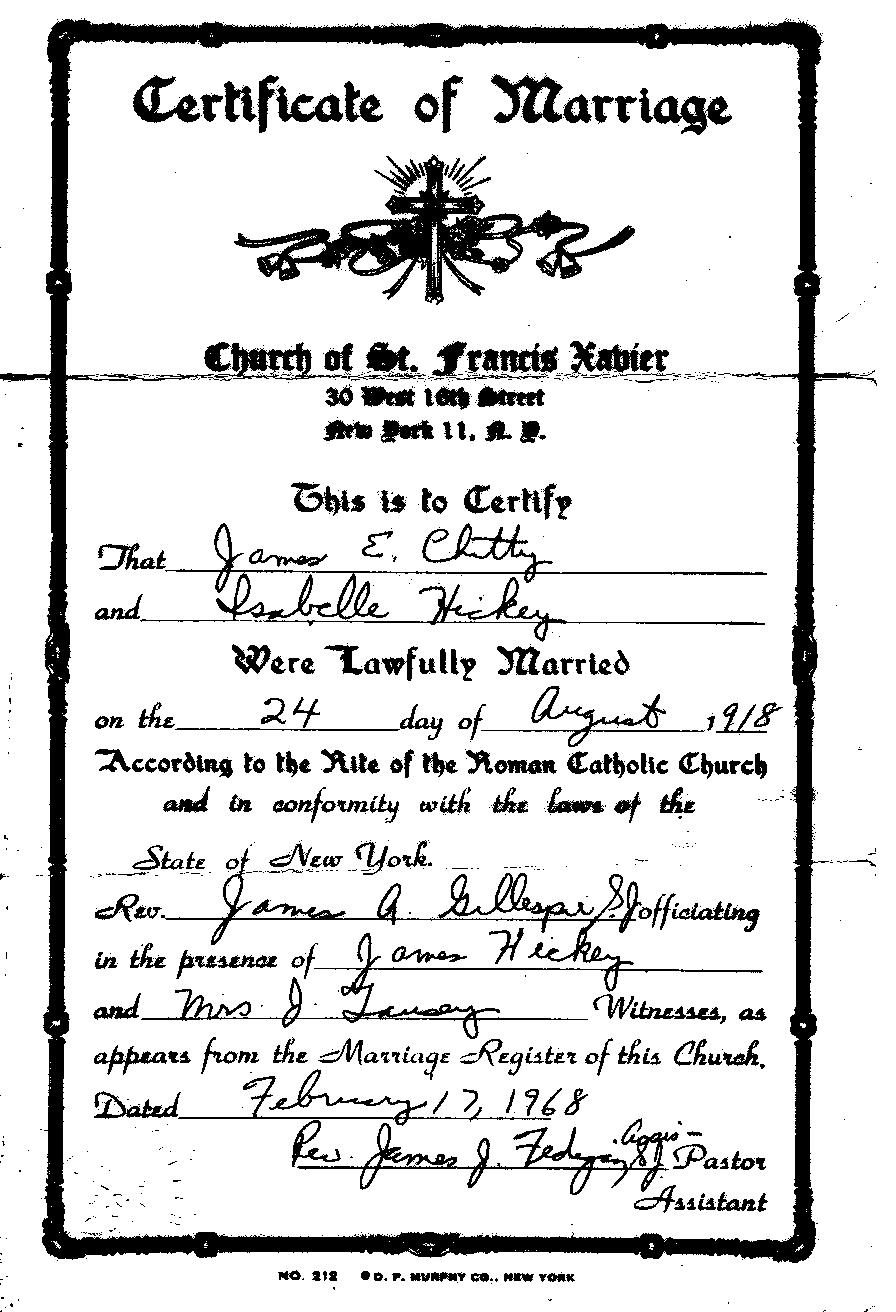 Certificate of Marriage
Church of St. Francis Xavier
30 West 16th Street
New York 11, N. Y.
This is to Certify
That James E. Chitty
and Isabelle Hickey
Were Lawfully Married
on the 24 day of August 1918
According to the Rite of the Roman Catholic Church
and in conformity with the laws of the
State of New York.
Rev. James A. Gillespie S.J. officiating
in the presence of James Hickey
and Mrs. J. Witnesses, as
appears from the Marriage Register of this Church.
Dated February 17, 1968
Rev. James J. SJ Pastor
Assistant
NO. 212 © D. P. MURPHY CO., NEW YORK